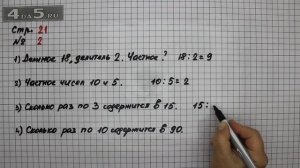 4da5.ru
Стр. 21
№ 2
1) Делимое 18, делитель 2. Частное? 18:2=9
2) Частное чисел 10 и 5. 10:5=2
3) Сколько раз по 3 содержится в 15. 15:
4) Сколько раз по 10 содержится в 90.